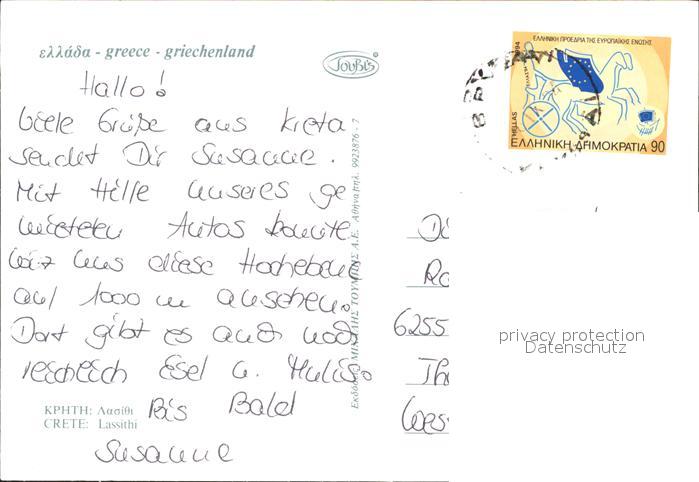 ελλάδα - greece - griechenland
JouBis
ΕΛΛΗΝΙΚΗ ΠΡΟΕΔΡΙΑ ΤΗΣ ΕΥΡΩΠΑΪΚΗΣ ΕΝΩΣΗΣ
1994
HELLAS
ΕΛΛΗΝΙΚΗ ΔΗΜΟΚΡΑΤΙΑ 90
Hallo!
Viele Grüße aus Kreta
sendet Dir Susanne.
Mit Hilfe unseres ge
mieteten Autos konnte
wir uns diese Hochebene
auf 1000 m ansehen.
Dort gibt es auch noch
reichlich Esel u. Mulis.
Bis Bald
Susanne
ΚΡΗΤΗ: Λασίθι
CRETE: Lassithi
Εκδόσεις ΜΙΧΑΗΛ ΤΟΥΜΠΗΣ Α.Ε. Αθήνα τηλ. 9923876 - 7
6255
privacy protection
Datenschutz